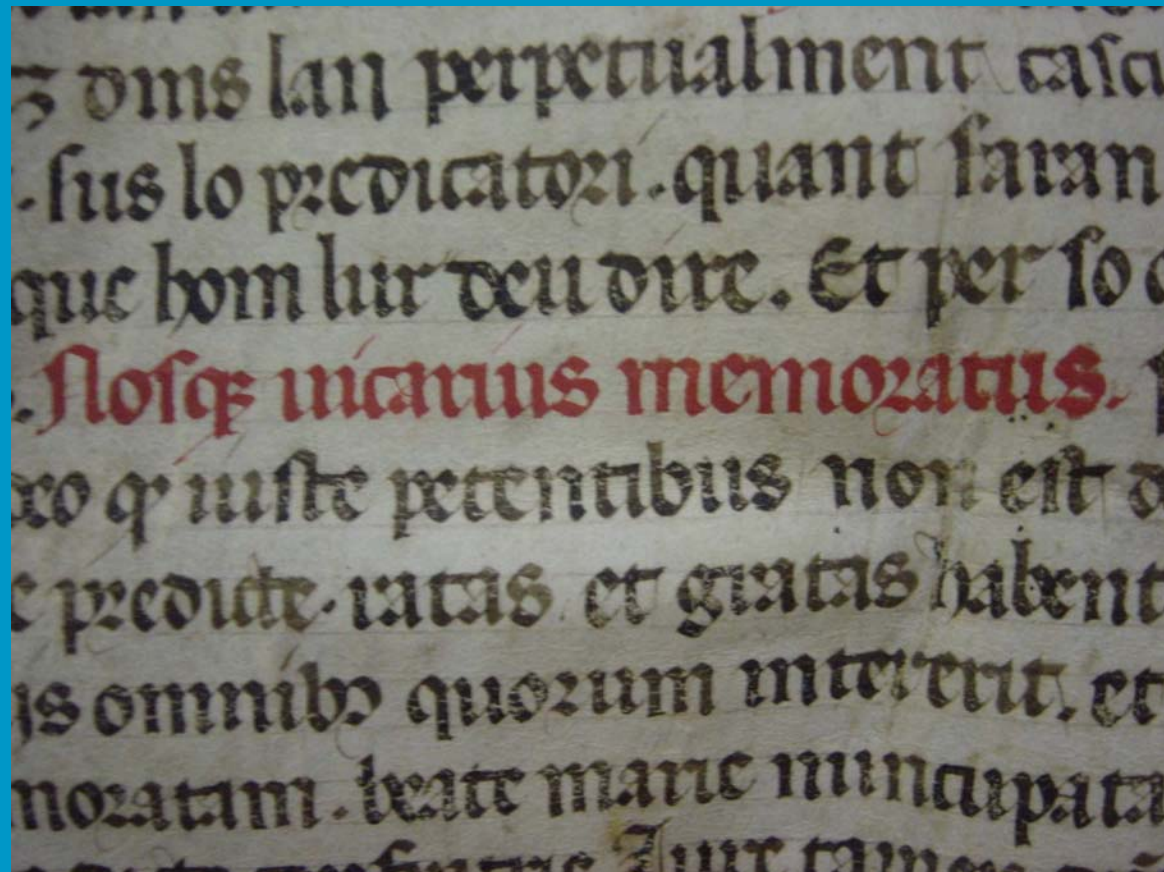 dins lan perpetualment cascu
. sus lo predicatori . quant saran
que hom lur deu dire . Et per so
. Nosqꝫ uicarius memoratus .
deo ꝙ iuste petentibus non est
predicte . ratas et gratas habent
omnibꝫ quorum intererit . et
moratam . beate marie nuncupata